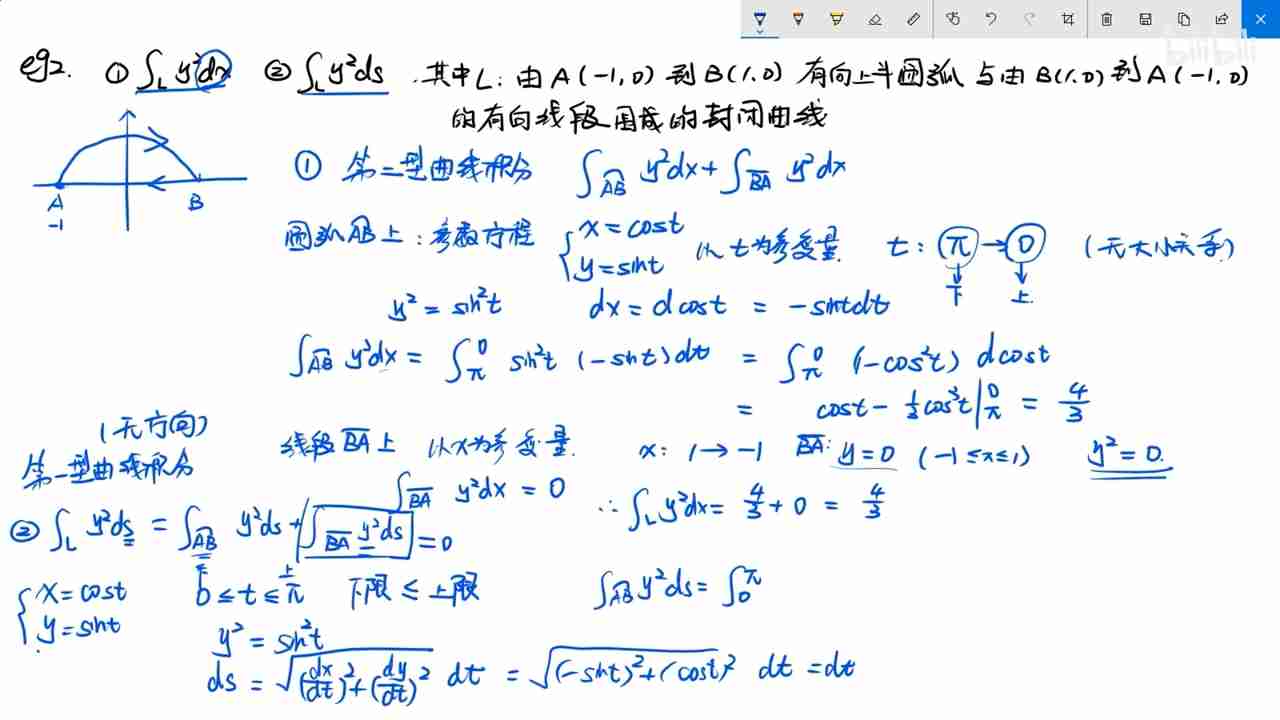 eg2. ① ∫_L y²dx ② ∫_L y²ds . 其中L: 由A(-1,0)到B(1,0)有向上半圆弧与由B(1,0)到A(-1,0)
的有向线段围成的封闭曲线
A B
-1
① 第二型曲线积分 ∫_{\overset{\frown}{AB}} y²dx + ∫_{\overline{BA}} y²dx
圆弧AB上: 参数方程 { x = cost y = sint 以t为参变量 t: π → 0 (无大小关系)
下 上
y² = sin²t dx = dcost = -sintdt
∫_{\overset{\frown}{AB}} y²dx = ∫_π^0 sin²t (-sint)dt = ∫_π^0 (1-cos²t) dcost
= cost - 1/3 cos³t |_π^0 = 4/3
线段\overline{BA}上 以x为参变量. x: 1 → -1 \overline{BA}: y=0 (-1≤x≤1) y² = 0.
∫_{\overline{BA}} y²dx = 0 ∴ ∫_L y²dx = 4/3 + 0 = 4/3
(无方向)
第一型曲线积分
② ∫_L y²ds = ∫_{\overset{\frown}{AB}} y²ds + ∫_{\overline{BA}} y²ds = 0
{ x = cost y = sint 0 ≤ t ≤ π 下 上 下限 ≤ 上限 ∫_{\overset{\frown}{AB}} y²ds = ∫_0^π
y² = sin²t
ds = √((dx/dt)² + (dy/dt)²) dt = √((-sint)² + (cost)²) dt = dt
bilibili